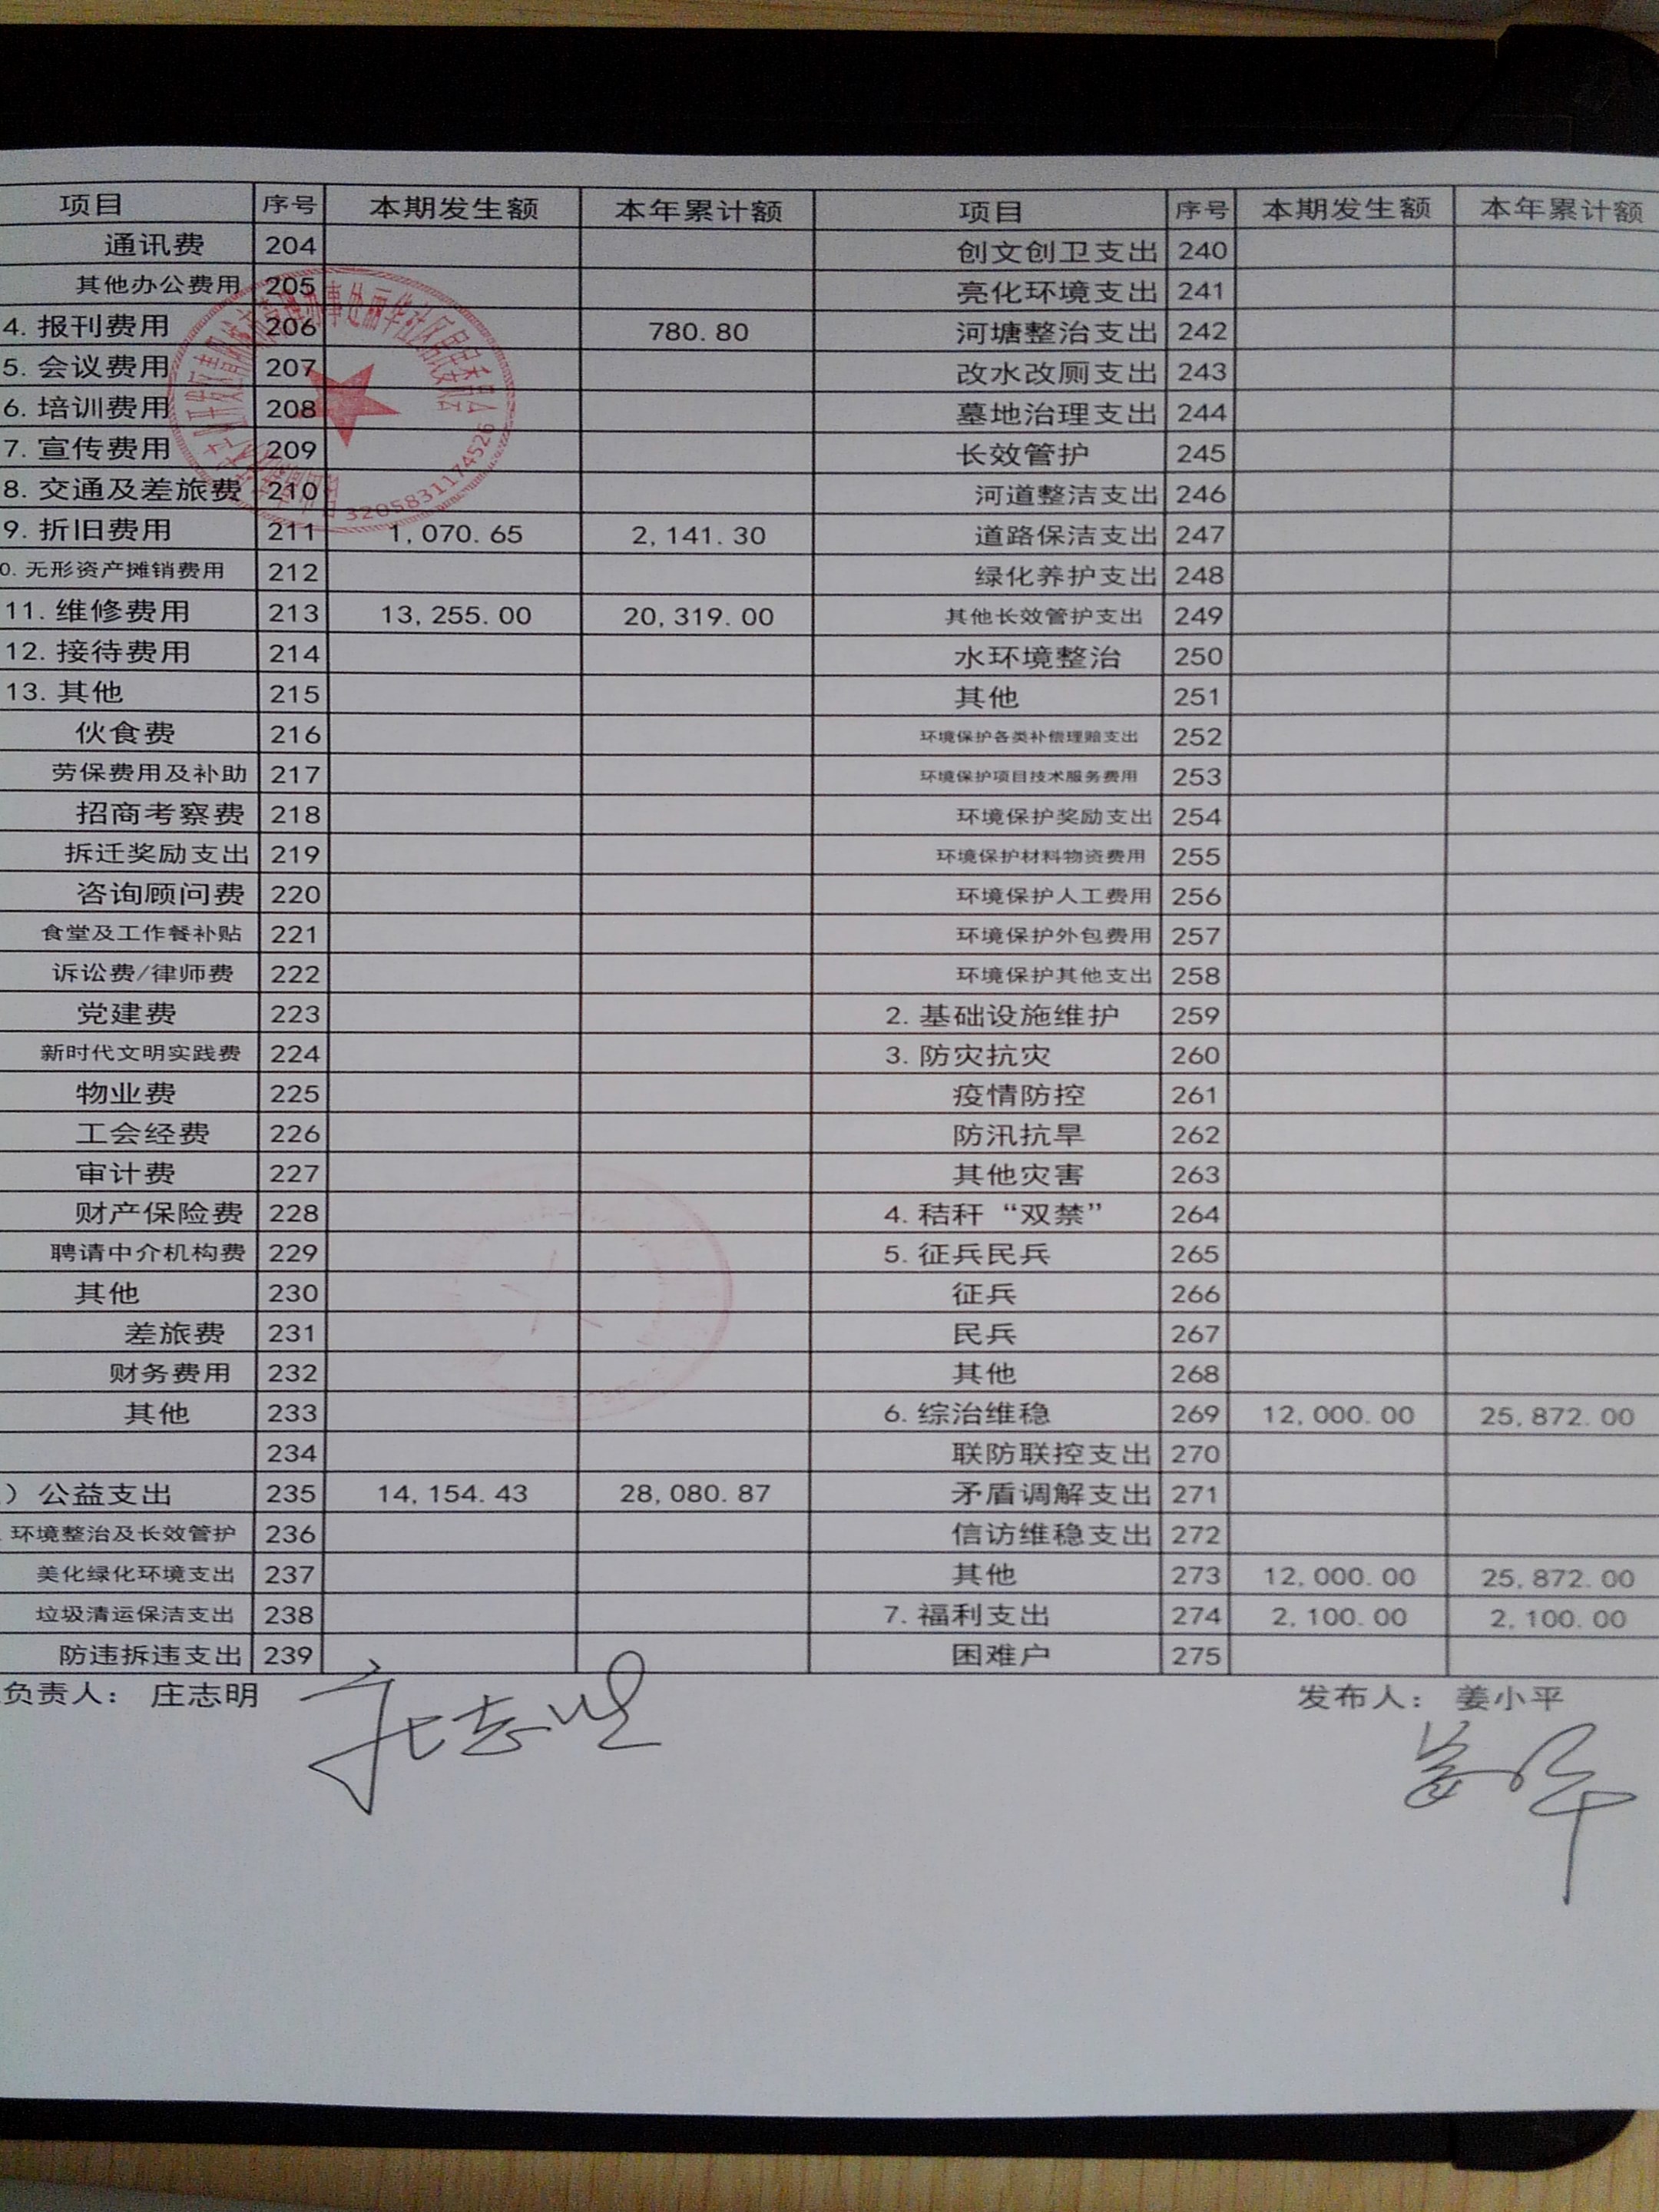 项目 序号 本期发生额 本年累计额 项目 序号 本期发生额 本年累计额
通讯费 204 创文创卫支出 240
其他办公费用 205 亮化环境支出 241
4. 报刊费用 206 780.80 河塘整治支出 242
5. 会议费用 207 改水改厕支出 243
6. 培训费用 208 墓地治理支出 244
7. 宣传费用 209 长效管护 245
8. 交通及差旅费 210 河道整洁支出 246
9. 折旧费用 211 1,070.65 2,141.30 道路保洁支出 247
0. 无形资产摊销费用 212 绿化养护支出 248
11. 维修费用 213 13,255.00 20,319.00 其他长效管护支出 249
12. 接待费用 214 水环境整治 250
13. 其他 215 其他 251
伙食费 216 环境保护各类补偿理赔支出 252
劳保费用及补助 217 环境保护项目技术服务费用 253
招商考察费 218 环境保护奖励支出 254
拆迁奖励支出 219 环境保护材料物资费用 255
咨询顾问费 220 环境保护人工费用 256
食堂及工作餐补贴 221 环境保护外包费用 257
诉讼费/律师费 222 环境保护其他支出 258
党建费 223 2. 基础设施维护 259
新时代文明实践费 224 3. 防灾抗灾 260
物业费 225 疫情防控 261
工会经费 226 防汛抗旱 262
审计费 227 其他灾害 263
财产保险费 228 4. 秸秆“双禁” 264
聘请中介机构费 229 5. 征兵民兵 265
其他 230 征兵 266
差旅费 231 民兵 267
财务费用 232 其他 268
其他 233 6. 综治维稳 269 12,000.00 25,872.00
234 联防联控支出 270
）公益支出 235 14,154.43 28,080.87 矛盾调解支出 271
环境整治及长效管护 236 信访维稳支出 272
美化绿化环境支出 237 其他 273 12,000.00 25,872.00
垃圾清运保洁支出 238 7. 福利支出 274 2,100.00 2,100.00
防违拆违支出 239 困难户 275
负责人： 庄志明 发布人： 姜小平
庄志明
姜小平
3205831174526